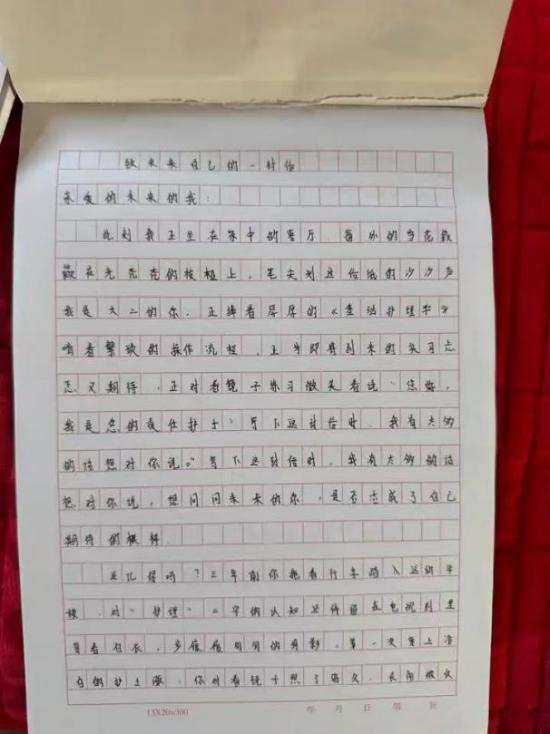 致未来自己的一封信
亲爱的未来的我：
此刻我正坐在家中的客厅，窗外的雪花
在光秃秃的枝桠上，笔尖划过信纸的沙沙声
我是大二的你，正捧着厚厚的《基础护理学》
啃着繁琐的操作流程，正为即将到来的实习忐
忑又期待，正对着镜子练习微笑着说“您好，
我是您的责任护士”写下这封信时，我有太多
的话想对你说。”写下这封信时，我有太多的话
想对你说，想问问未来的你，是否活成了自己
期待的模样
还记得吗？三年前你拖着行李踏入这所学
校，对“护理”二字的认知还停留在电视剧里
白的护士服，你对着镜子照了好久，衣角被
13X20=300
年 月 日 第 页